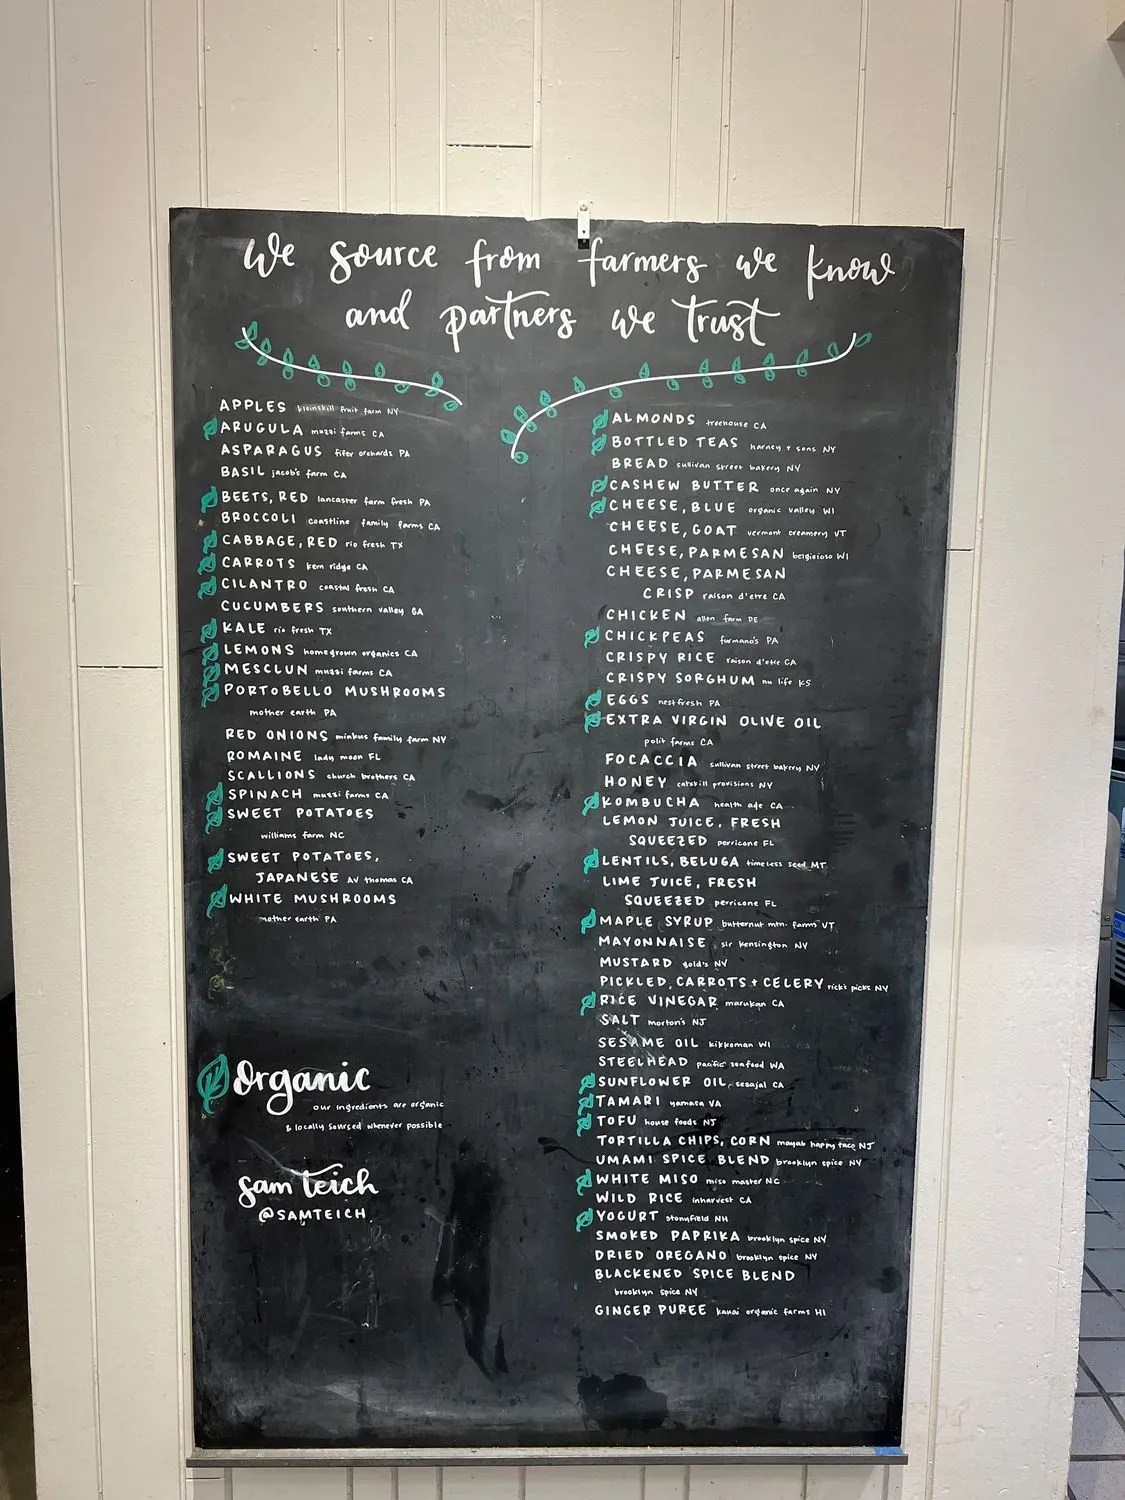 We source from farmers we know
and partners we trust
APPLES kleinskill fruit farm NY
ARUGULA muzzi farms CA
ASPARAGUS fifer orchards PA
BASIL jacob's farm CA
BEETS, RED lancaster farm fresh PA
BROCCOLI coastline family farms CA
CABBAGE, RED rio fresh TX
CARROTS kern ridge CA
CILANTRO coastal fresh CA
CUCUMBERS southern valley GA
KALE rio fresh TX
LEMONS homegrown organics CA
MESCLUN muzzi farms CA
PORTOBELLO MUSHROOMS
mother earth PA
RED ONIONS minkus family farm NY
ROMAINE lady moon FL
SCALLIONS church brothers CA
SPINACH muzzi farms CA
SWEET POTATOES
williams farm NC
SWEET POTATOES,
JAPANESE AV thomas CA
WHITE MUSHROOMS
mother earth PA
Organic
our ingredients are organic
& locally sourced whenever possible
sam teich
@SAMTEICH
ALMONDS treehouse CA
BOTTLED TEAS harney + sons NY
BREAD sullivan street bakery NY
CASHEW BUTTER once again NY
CHEESE, BLUE organic valley WI
CHEESE, GOAT vermont creamery VT
CHEESE, PARMESAN belgioioso WI
CHEESE, PARMESAN
CRISP raison d'etre CA
CHICKEN allen farm DE
CHICKPEAS furmano's PA
CRISPY RICE raison d'etre CA
CRISPY SORGHUM nu life KS
EGGS nestfresh PA
EXTRA VIRGIN OLIVE OIL
polit farms CA
FOCACCIA sullivan street bakery NY
HONEY catskill provisions NY
KOMBUCHA health ade CA
LEMON JUICE, FRESH
SQUEEZED perricone FL
LENTILS, BELUGA timeless seed MT
LIME JUICE, FRESH
SQUEEZED perricone FL
MAPLE SYRUP butternut mtn. farms VT
MAYONNAISE sir kensington NY
MUSTARD gold's NY
PICKLED, CARROTS + CELERY rick's picks NY
RICE VINEGAR marukan CA
SALT morton's NJ
SESAME OIL kikkoman WI
STEELHEAD pacific seafood WA
SUNFLOWER OIL, sesajal CA
TAMARI yamasa VA
TOFU house foods NJ
TORTILLA CHIPS, CORN mayab happy taco NJ
UMAMI SPICE BLEND brooklyn spice NY
WHITE MISO miso master NC
WILD RICE inharvest CA
YOGURT stonyfield NH
SMOKED PAPRIKA brooklyn spice NY
DRIED OREGANO brooklyn spice NY
BLACKENED SPICE BLEND
brooklyn spice NY
GINGER PUREE kauai organic farms HI